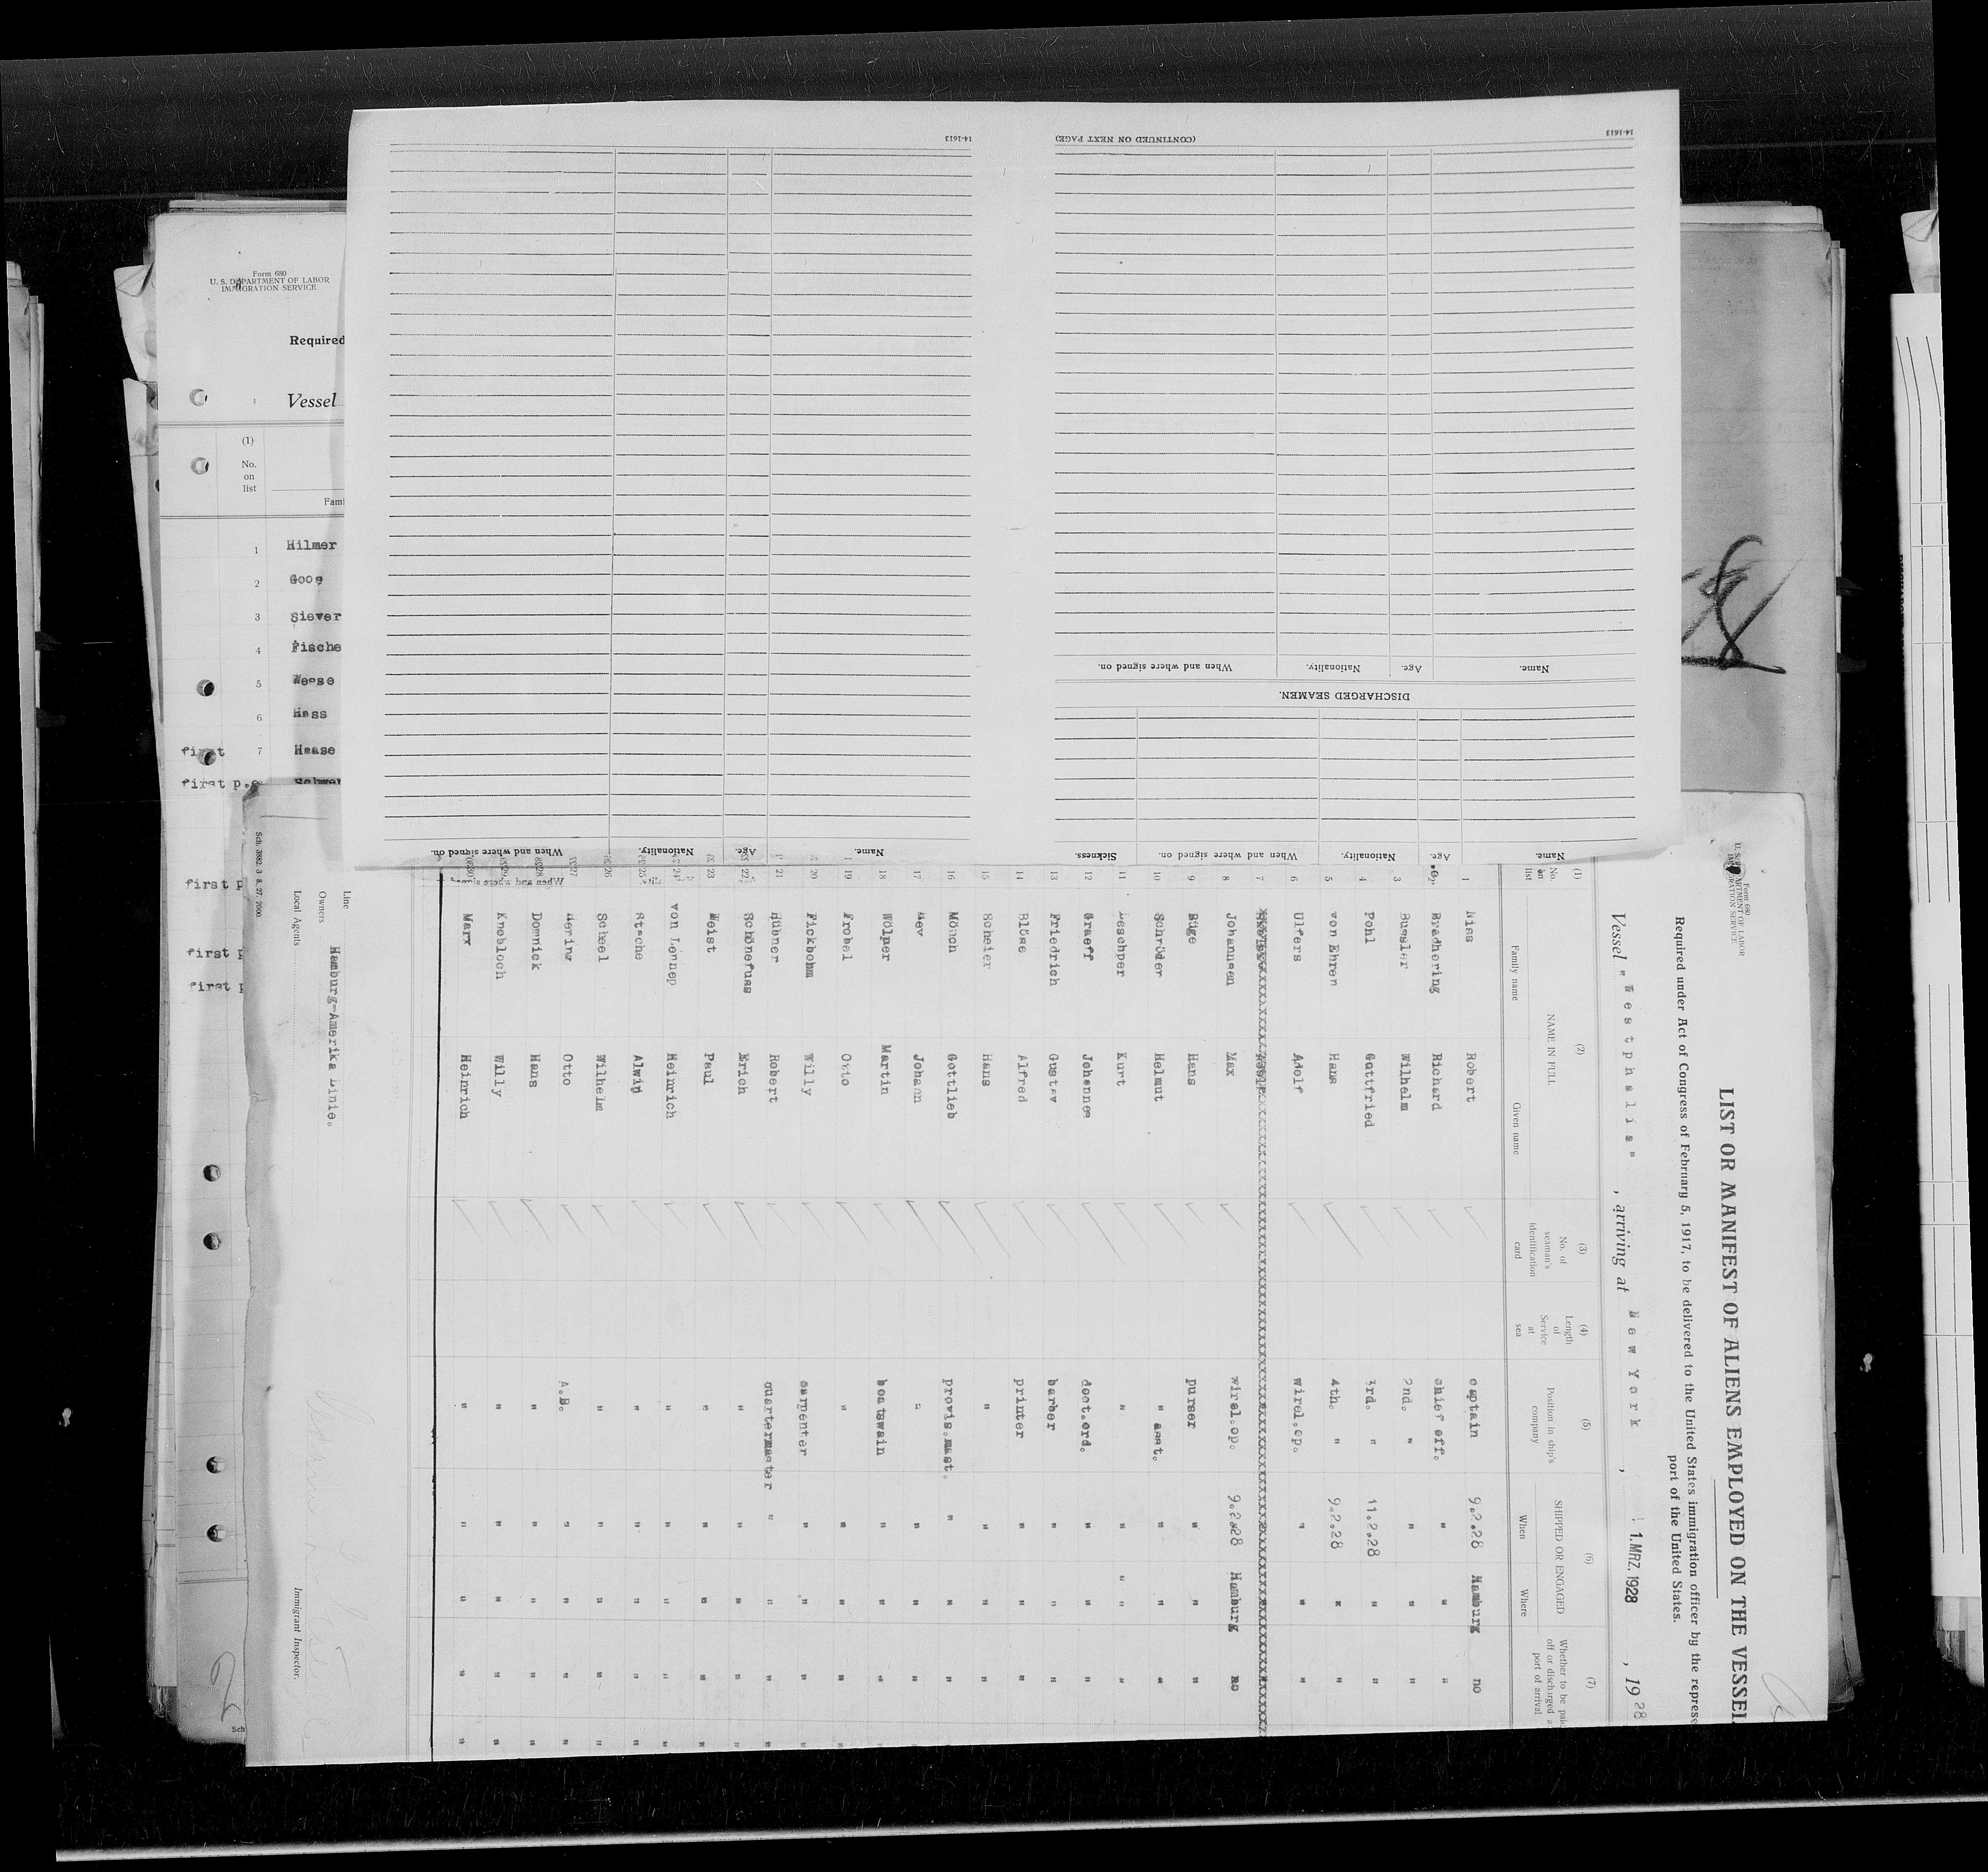 14-1613
(CONTINUED ON NEXT PAGE)
14-1613
Name.
Age.
Nationality.
When and where signed on.
DISCHARGED SEAMEN.
Name.
Age.
Nationality.
When and where signed on.
Sickness.
Name.
Age.
Nationality.
When and where signed on.
Form 680
U. S. DEPARTMENT OF LABOR
IMMIGRATION SERVICE
Required
Vessel
(1)
No.
on
list
Fami
1 Hilmer
2 Goos
3 Siever
4 Fische
5 Weese
6 Hass
first 7 Haase
first p.
first p
first p
first p
Sch
Form 680
U. S. DEPARTMENT OF LABOR
IMMIGRATION SERVICE
LIST OR MANIFEST OF ALIENS EMPLOYED ON THE VESSEL
Required under Act of Congress of February 5, 1917, to be delivered to the United States immigration officer by the represe
port of the United States.
Vessel "Westphalia", arriving at New York, 1. MRZ. 1928, 1928
(1) No. on list
(2) NAME IN FULL
Family name
Given name
(3) No. of seaman's identification card
(4) Length of Service at sea
(5) Position in ship's company
(6) SHIPPED OR ENGAGED
When
Where
(7) Whether to be paid off or discharged a port of arrival
1 Nies Robert captain 9.2.28 Hamburg no
Bradhering Richard chief off. " " "
3 Bussler Wilhelm 2nd. " " " "
4 Pohl Gottfried 3rd. " 11.2.28 " "
5 von Ehren Hans 4th. " 9.2.28 " "
6 Ulfers Adolf wirel.op. " " "
7
8 Johannsen Max wirel.op. 9.2.28 Hamburg no
9 Büge Hans purser " " "
10 Schröder Helmut " asst. " " "
11 Leschper Kurt " " " "
12 Graeff Johannes doct.ord. " " "
13 Friedrich Gustav barber " " "
14 Blöse Alfred printer " " "
15 Scheier Hans " " " "
16 Mönch Gottlieb provis.mast. " " "
17 Johann " " " "
18 Wölper Martin boatswain " " "
19 Frobel Otto " " " "
20 Fickbohm Willy carpenter " " "
21 Hübner Robert quartermaster " " "
22 Schönefuss Erich " " " "
23 Paul " " " "
24 von Lennep Heinrich " " " "
25 Stache Alwin " " " "
26 Scheel Wilhelm " " " "
27 Hering Otto A.B. " " "
28 Domnick Hans " " " "
29 Knobloch Willy " " " "
30 Marx Heinrich " " " "
Line
Owners Hamburg-Amerika Linie.
Local Agents
Immigrant Inspector.